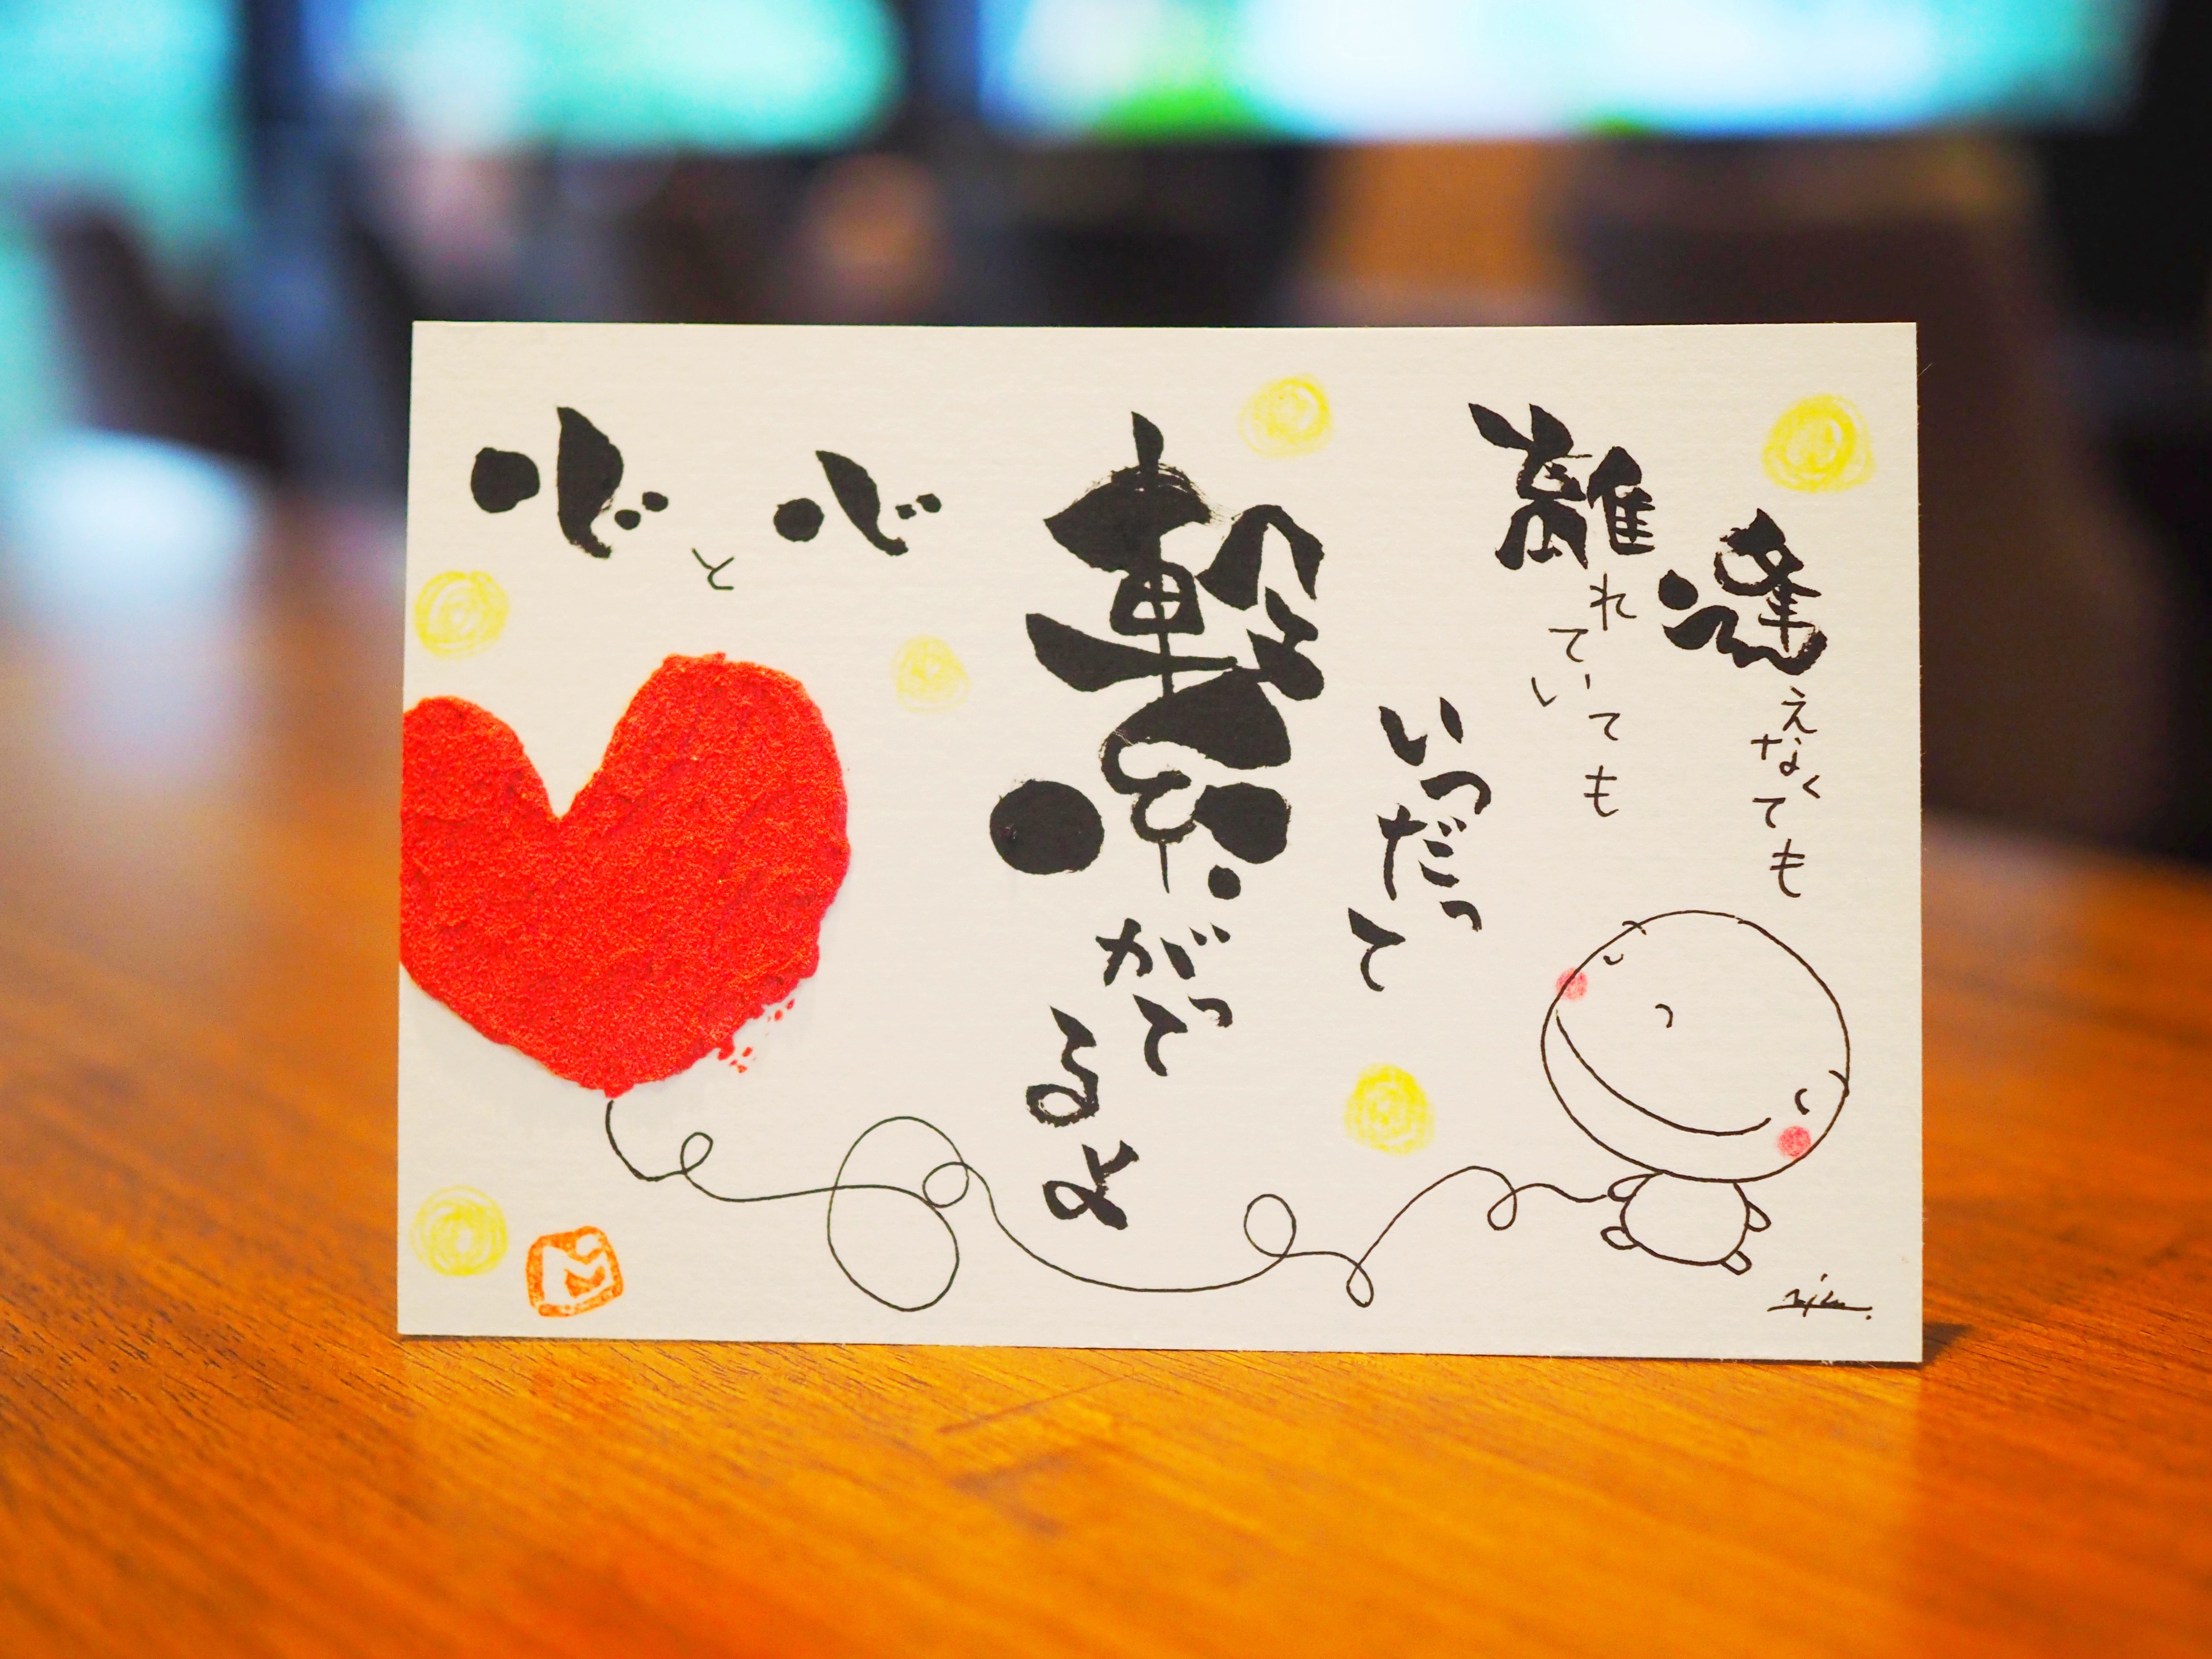 逢えなくても
離れていても
いつだって
繋がってるよ
心と心